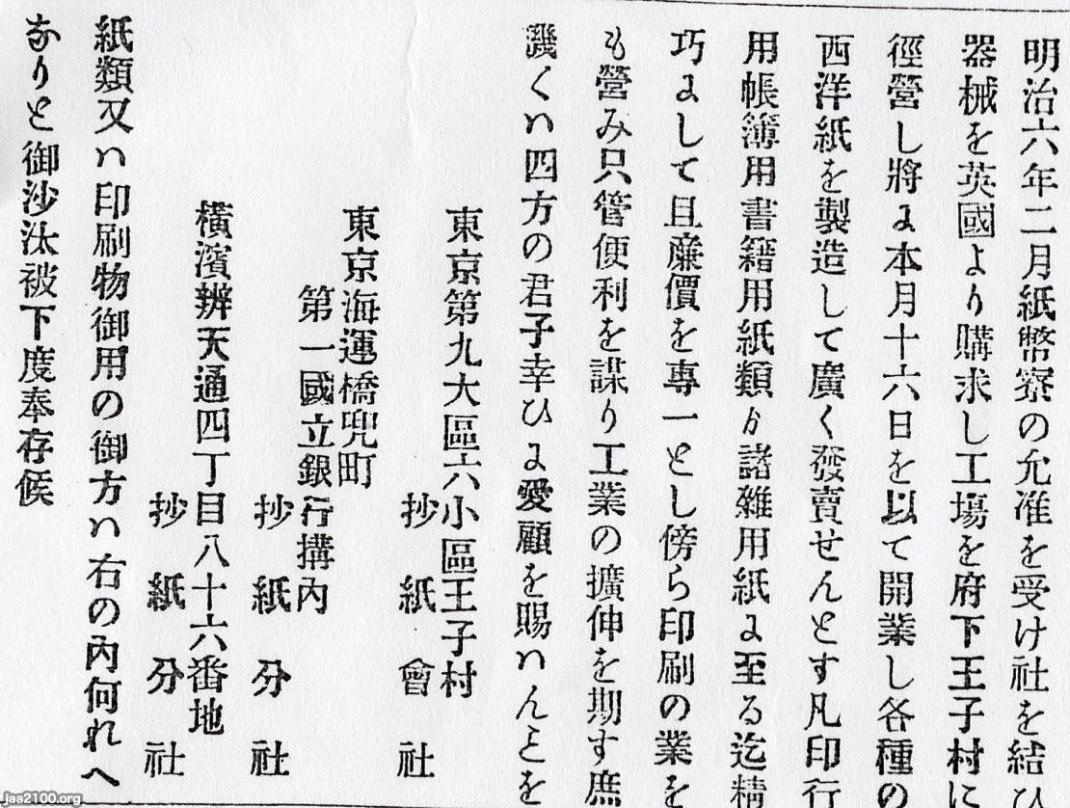 明治六年二月紙幣寮の允准を受け社を結ひ
器械を英國より購求し工場を府下王子村に
徑營し將に本月十六日を以て開業し各種の
西洋紙を製造して廣く發賣せんとす凡印行
用帳簿用書籍用紙類か諸雑用紙に至る迄精
巧にして且廉價を專一とし傍ら印刷の業を
も營み只管便利を謀り工業の擴伸を期す庶
譏くハ四方の君子幸ひに愛顧を賜ハんとを
東京第九大區六小區王子村
抄紙會社
東京海運橋兜町
第一國立銀行搆內
抄紙分社
橫濱辨天通四丁目八十六番地
抄紙分社
紙類又ハ印刷物御用の御方ハ右の內何れへ
なりと御沙汰被下度奉存候
jaa2100.org